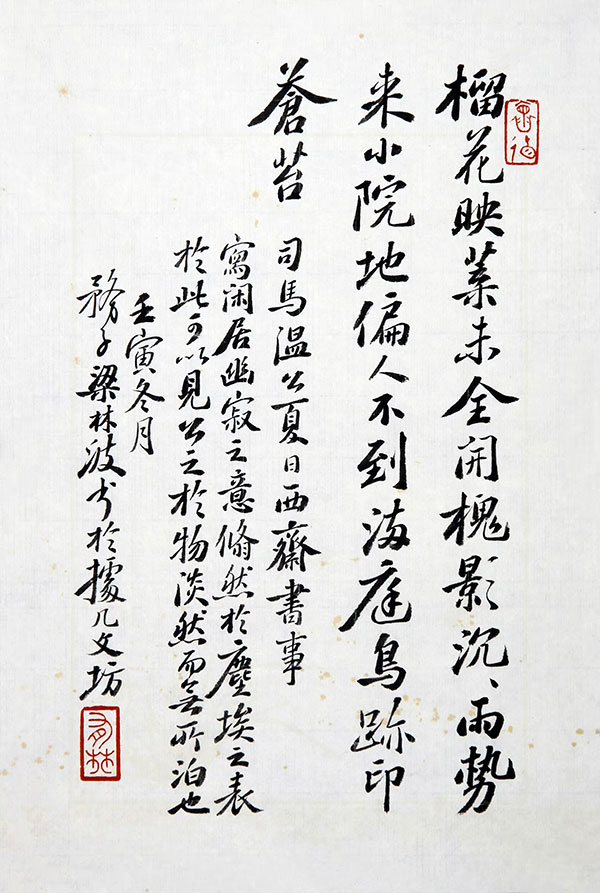 榴花映葉未全開槐影沉、雨勢
来小院地偏人不到满庭鳥跡印
蒼苔
司馬温公夏日西齋書事
寫闲居幽寂之意翛然於塵埃之表
於此可以見公之於物淡然而無所泊也
壬寅冬月
務子梁林波书於據几文坊